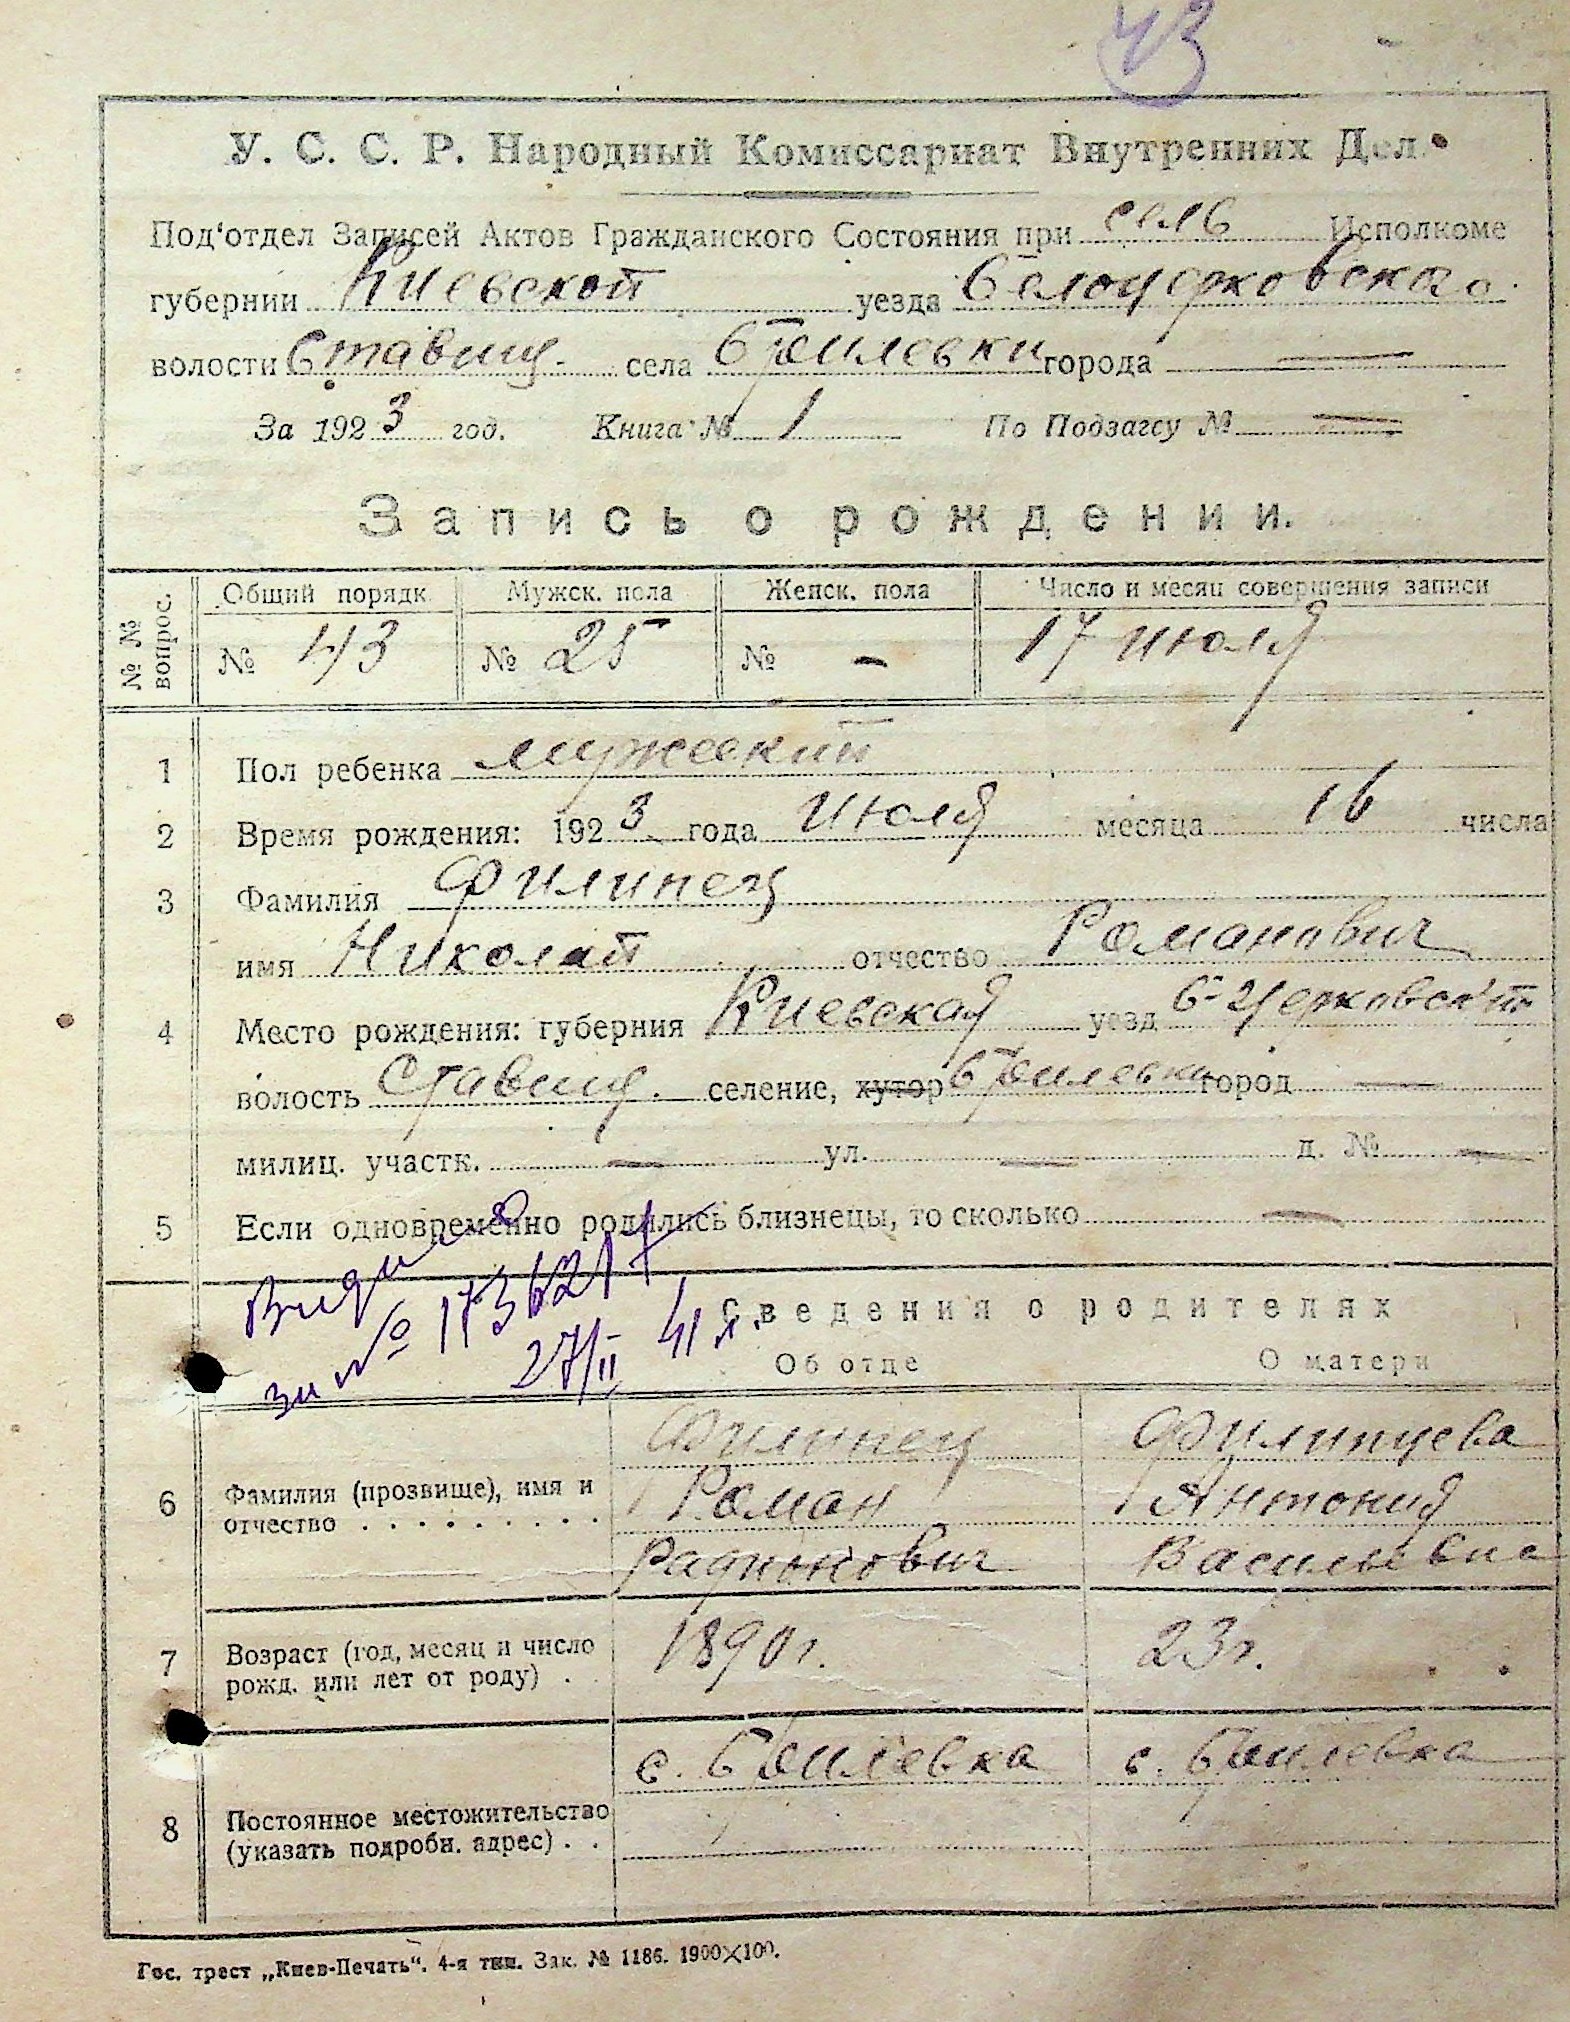 43
У. С. С. Р. Народный Комиссариат Внутренних Дел.
Под‘отдел Записей Актов Гражданского Состояния при сель Исполкоме
губернии Киевской уезда Белоцерковского
волости Ставищ. села города —
За 1923 год. Книга № 1 По Подзагсу № —
Запись о рождении.
№ № вопрос. Общий порядк. Мужск. пола Женск. пола Число и месяц совершения записи
№ 43 № 25 № - 17 июля
1 Пол ребенка мужеский
2 Время рождения: 1923 года Июля месяца 16 числа
3 Фамилия Филипец
имя Николай отчество Романович
4 Место рождения: губерния Киевская уезд Б-Церковский
волость Ставищ. селение, хутор город —
милиц. участк. — ул. — д. № —
5 Если одновременно родились близнецы, то сколько —
за № 
27/II 41
Сведения о родителях
Об отце О матери
Филипец Филипцева
6 Фамилия (прозвище), имя и Роман Антония
отчество . . . . . . . . . Радионович
7 Возраст (год, месяц и число 1890 г. 23 г.
рожд. или лет от роду) .
8 Постоянное местожительство
(указать подробн. адрес) . .
Гос. трест „Киев-Печать“. 4-я тип. Зак. № 1186. 1900×100.